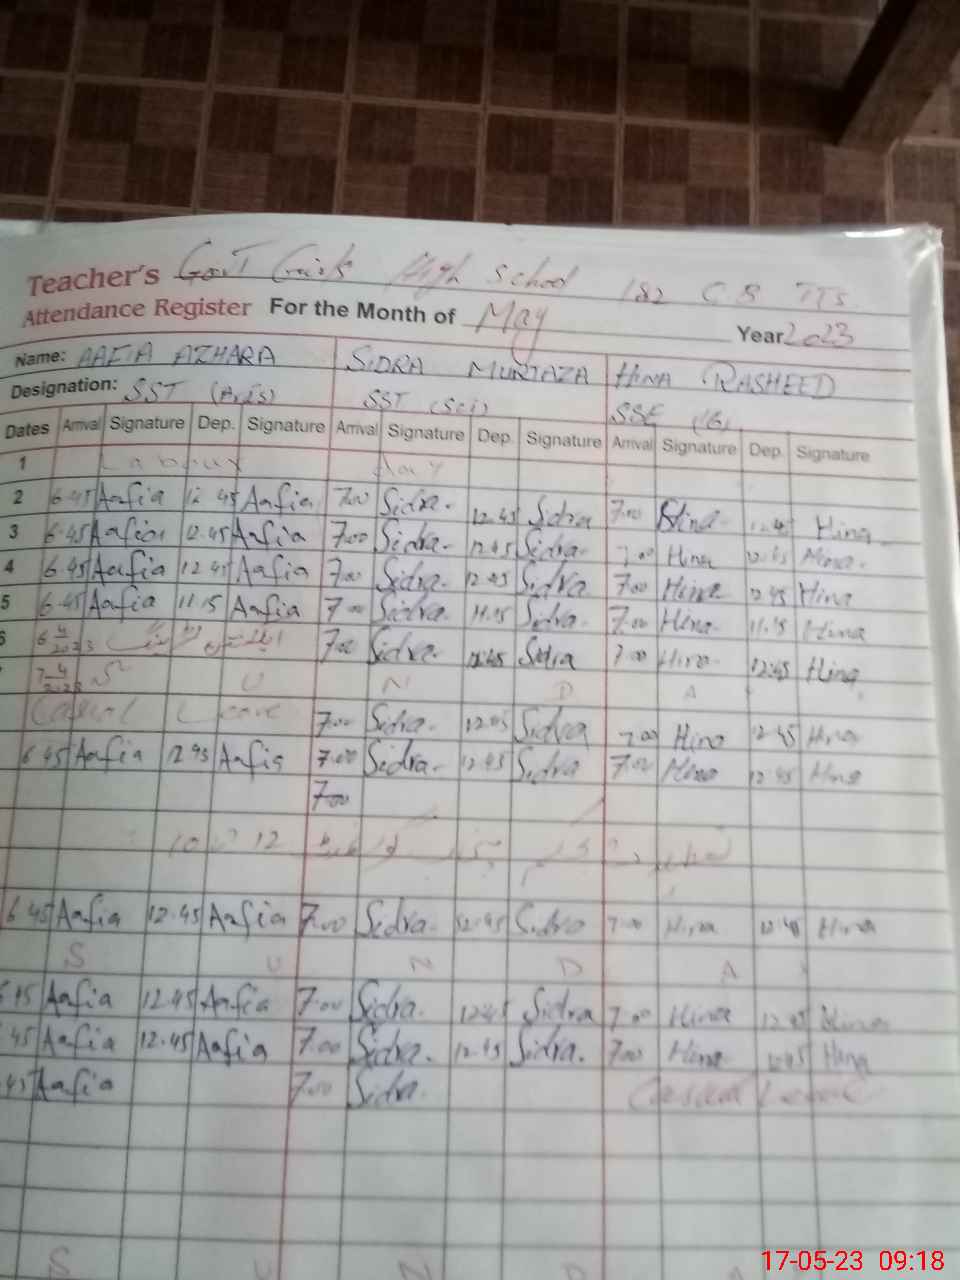 Teacher's Govt Girls High School 182 G B TTS
Attendance Register For the Month of May Year 2023
Name: AAFIA AZHARA SIDRA MURTAZA HINA RASHEED
Designation: SST (Arts) SST (Sci) SSE (16)
Dates Arrival Signature Dep. Signature Arrival Signature Dep. Signature Arrival Signature Dep. Signature
1 Labour Day
2 6.45 Aafia 12.45 Aafia 7.00 Sidra 12.45 Sidra 7.00 Hina 12.45 Hina
3 6.45 Aafia 12.45 Aafia 7.00 Sidra 12.45 Sidra 7.00 Hina 12.45 Hina
4 6.45 Aafia 12.45 Aafia 7.00 Sidra 12.45 Sidra 7.00 Hina 12.45 Hina
5 6.45 Aafia 11.15 Aafia 7.00 Sidra 11.15 Sidra 7.00 Hina 11.15 Hina
6 7.00 Sidra 12.45 Sidra 7.00 Hina 12.45 Hina
S U N D A
Casual Leave 7.00 Sidra 12.45 Sidra 7.00 Hina 12.45 Hina
6.45 Aafia 12.45 Aafia 7.00 Sidra 12.45 Sidra 7.00 Hina 12.45 Hina
7.00
12
6.45 Aafia 12.45 Aafia 7.00 Sidra 12.45 Sidra 7.00 Hina 12.45 Hina
S U N D A Y
45 Aafia 12.45 Aafia 7.00 Sidra 12.45 Sidra 7.00 Hina 12.45 Hina
45 Aafia 12.45 Aafia 7.00 Sidra 12.45 Sidra 7.00 Hina 12.45 Hina
45 Aafia 7.00 Sidra Casual Leave
S U N D A
17-05-23 09:18